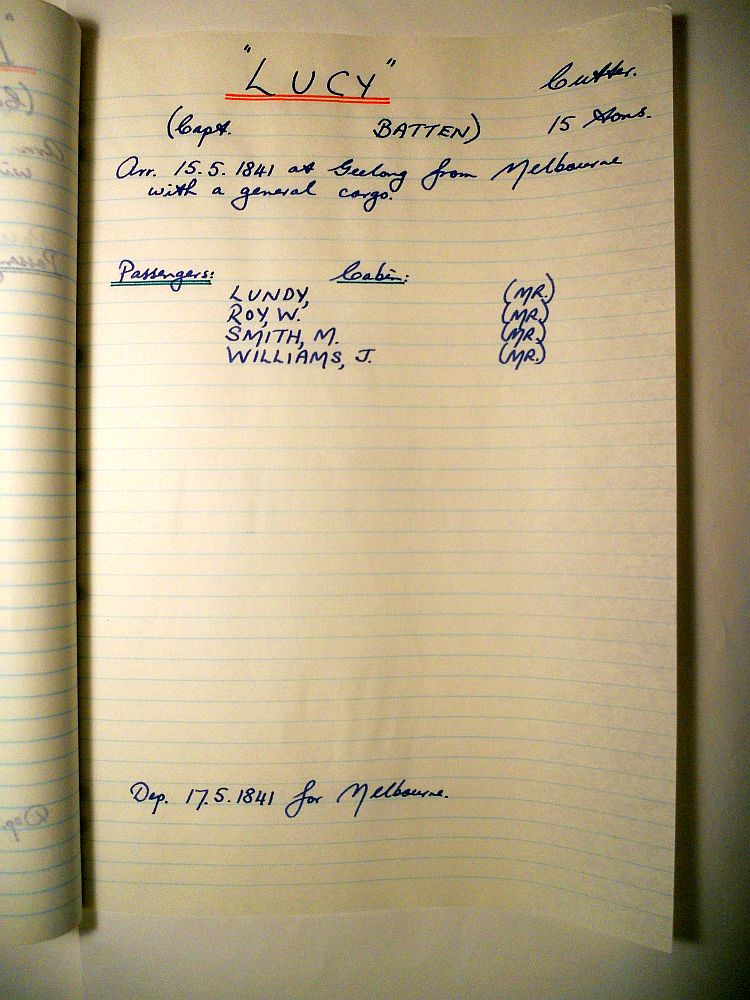 "LUCY" Cutter.
(Capt. BATTEN) 15 Tons.
Arr. 15.5.1841 at Geelong from Melbourne
with a general cargo.
Passengers: Cabin:
LUNDY, (MR.)
ROY, W. (MR.)
SMITH, M. (MR.)
WILLIAMS, J. (MR.)
Dep. 17.5.1841 for Melbourne.